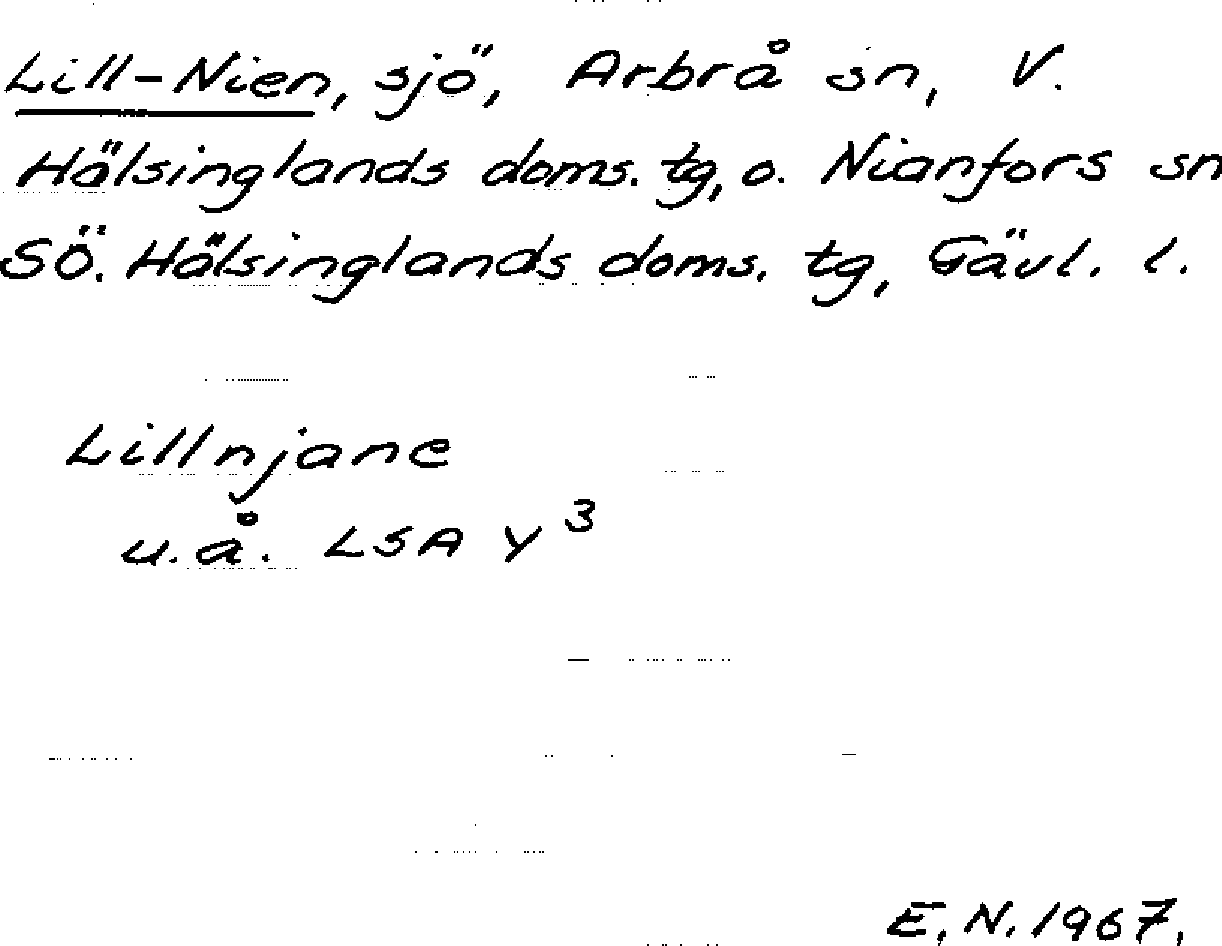 Lill-Nien, sjö, Arbrå sn, V.
Hälsinglands doms. tg, o. Nianfors sn
SÖ. Hälsinglands doms. tg, Gävl. l.
Lillnjane
u.å. LSA Y 3
E.N. 1967.